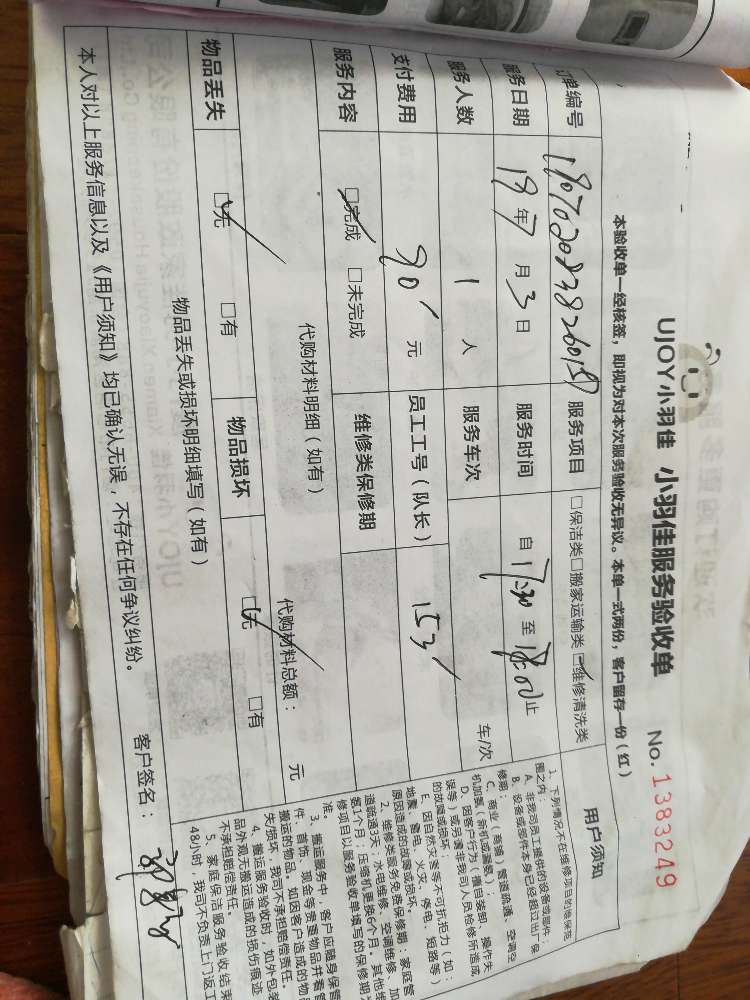 UJOY小羽佳 小羽佳服务验收单 No. 1383249
本验收单一经核签，即视为对本次服务验收无异议。本单一式两份，客户留存一份（红）
订单编号 服务项目 □保洁类□搬家运输类□维修清洗类
服务日期 19年7月3日 服务时间 自17:30至18:00止
服务人数 1人 服务车次 车/次
支付费用 90元 员工工号（队长） 153
服务内容 □完成 □未完成 维修类保修期
代购材料明细（如有） 代购材料总额： 元
物品丢失 □无 □有 物品损坏 □无 □有
物品丢失或损坏明细填写（如有）
本人对以上服务信息以及《用户须知》均已确认无误，不存在任何争议纠纷。
客户签名：
用户须知
1、下列情况不在维修项目的保修范
围之内：
A、非我司员工提供的设备或部件；
B、设备或部件本身已经超过出厂保
修期；
C、商业（商铺）管道疏通、空调空
机加氟（新机或漏氟）；
D、因客户行为（擅自装卸、操作失
误等）或另请非我司人员检修所造成
的故障或损坏；
E、因自然灾害等不可抗拒力（如：
地震、雷电、火灾、停电、短路等）
原因造成的故障或损坏。
2、维修类服务免费保修期：家庭管
道疏通3天；水电维修、空调维修、加
氟1个月；压缩机更换6个月。其他维
修项目以服务验收单填写的保修期为
准。
3、搬运服务中，客户应随身保管
件、首饰、现金等贵重物品并看管
搬运的物品。如因客户造成的物品
失/损坏，我司不承担赔偿责任。
4、搬运服务验收时，如外包装
品外观无搬运造成的损伤痕迹
不承担赔偿责任。
5、家庭保洁服务验收结束
48小时，我司不负责上门返工